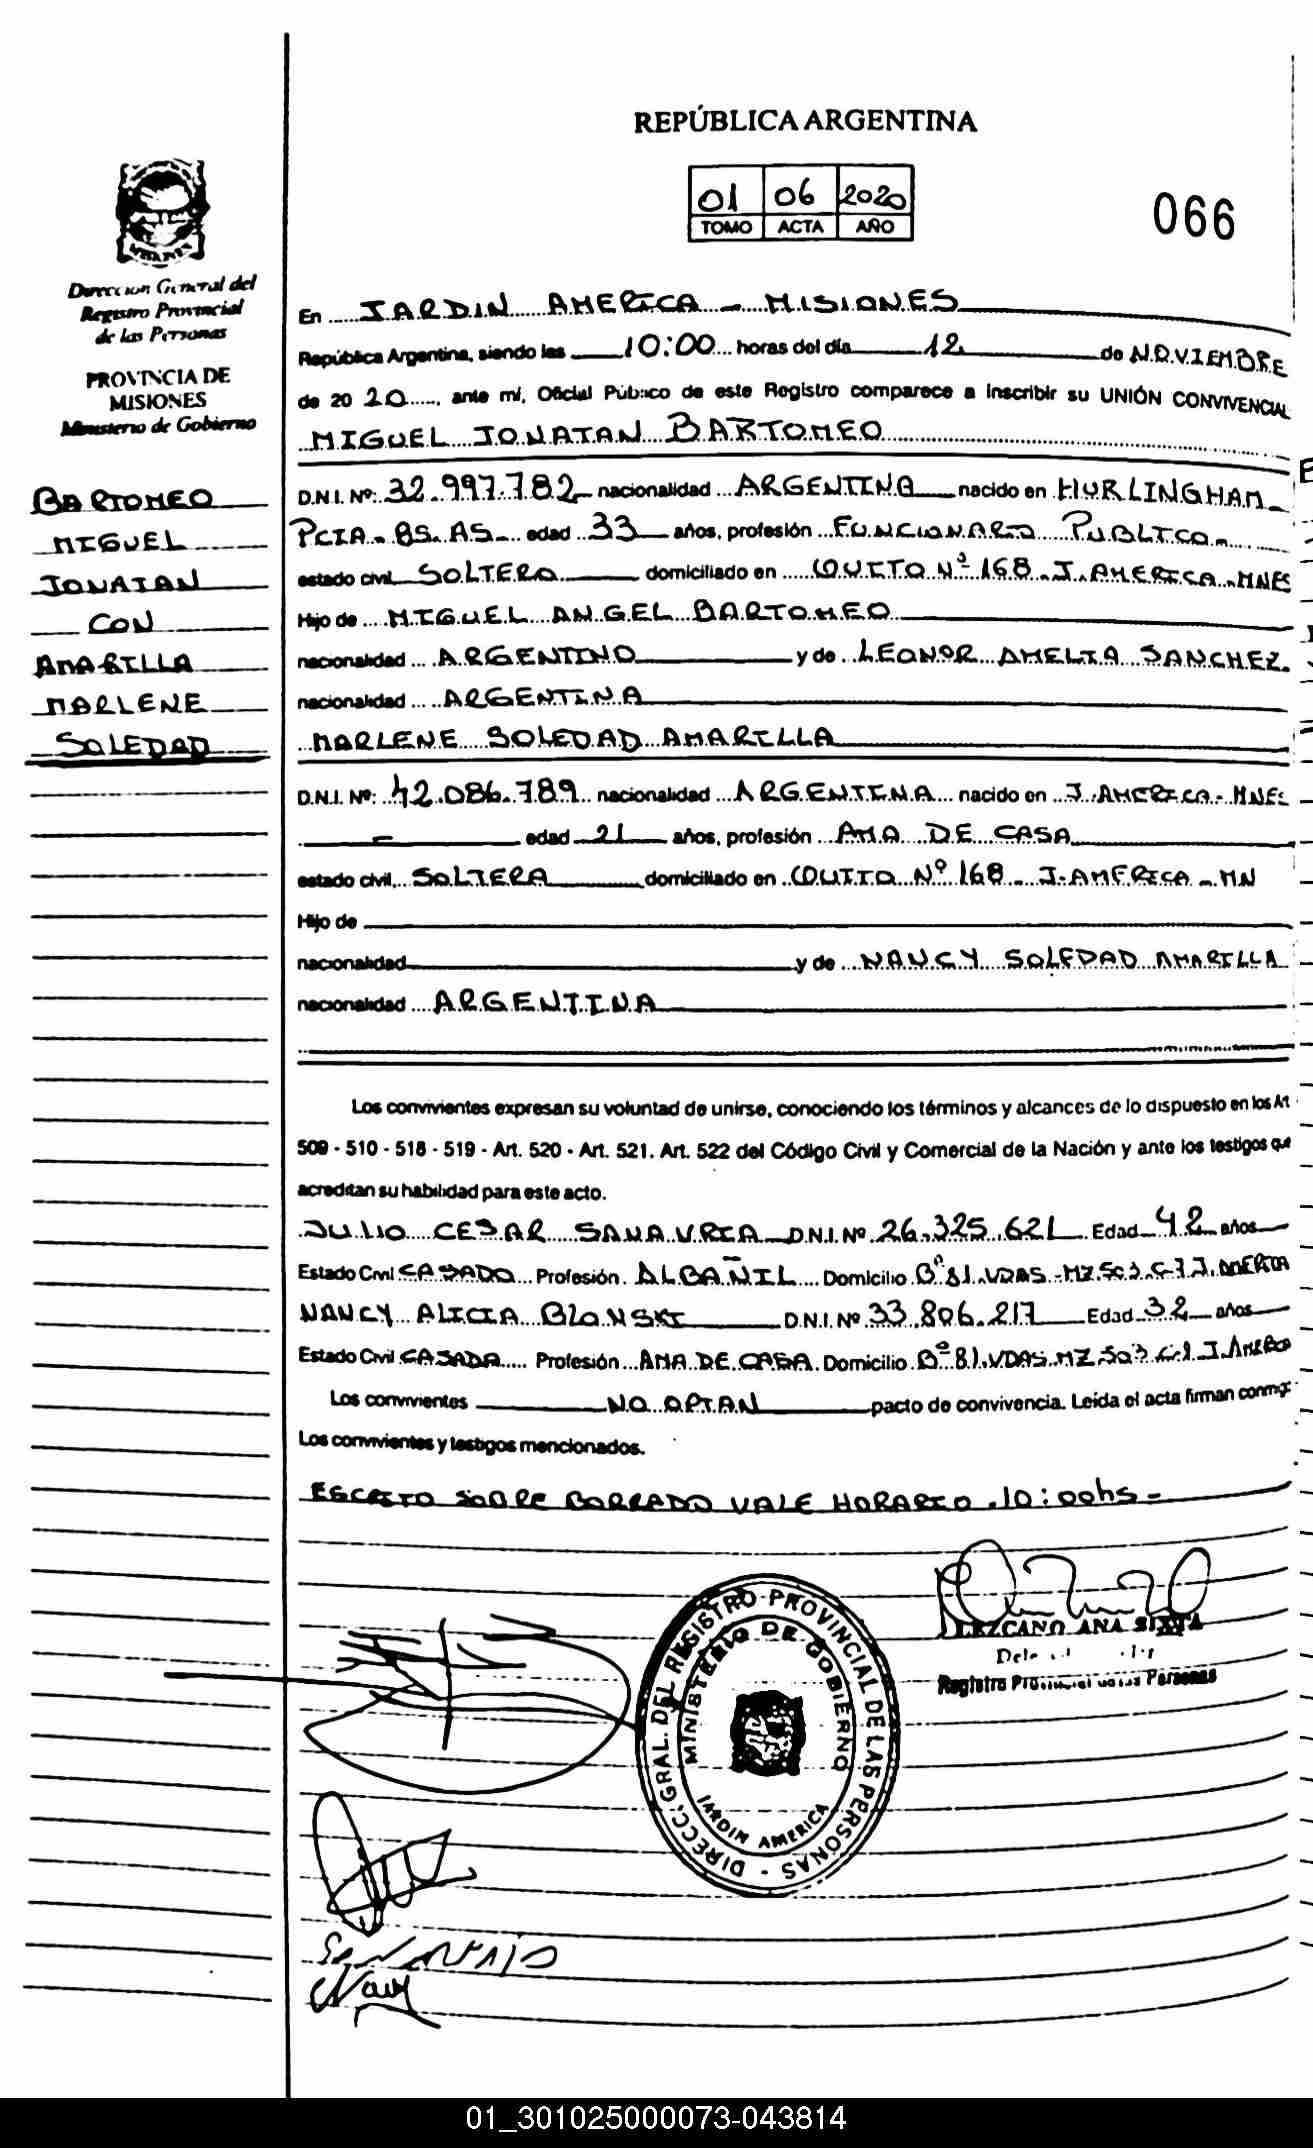 REPÚBLICA ARGENTINA
01 06 2020
TOMO ACTA AÑO
066
Direccion General del
Registro Provincial
de las Personas
PROVINCIA DE
MISIONES
Ministerio de Gobierno
BARTOMEO
MIGUEL
JONATAN
CON
AMARILLA
MARLENE
SOLEDAD
En JARDIN AMERICA - MISIONES
República Argentina, siendo las 10:00 horas del día 12 de NOVIEMBRE
de 20 20, ante mí, Oficial Público de este Registro comparece a inscribir su UNIÓN CONVIVENCIAL
MIGUEL JONATAN BARTOMEO
D.N.I. Nº: 32.997.782 nacionalidad ARGENTINA nacido en HURLINGHAM
PCIA. BS. AS. edad 33 años, profesión FUNCIONARIO PUBLICO
estado civil SOLTERO domiciliado en QUITO Nº 168 J. AMERICA - MNES
Hijo de MIGUEL ANGEL BARTOMEO
nacionalidad ARGENTINO y de LEONOR AMELIA SANCHEZ.
nacionalidad ARGENTINA
MARLENE SOLEDAD AMARILLA
D.N.I. Nº: 42.086.789 nacionalidad ARGENTINA nacido en J. AMERICA - MNES
- edad 21 años, profesión AMA DE CASA
estado civil, SOLTERA domiciliado en QUITO Nº 168 - J. AMERICA - MN
Hijo de
nacionalidad y de NANCY SOLEDAD AMARILLA
nacionalidad ARGENTINA
Los convivientes expresan su voluntad de unirse, conociendo los términos y alcances de lo dispuesto en los Art
509 - 510 - 518 - 519 - Art. 520 - Art. 521. Art. 522 del Código Civil y Comercial de la Nación y ante los testigos que
acreditan su habilidad para este acto.
JULIO CESAR SANAVRIA D.N.I. Nº 26.325.621 Edad 42 años
Estado Civil CASADO Profesión. ALBAÑIL Domicilio Bº 81 VDAS - MZ 503 C-7 J. AMERICA
NANCY ALICIA BLONSKI D.N.I. Nº 33.806.217 Edad 32 años
Estado Civil CASADA Profesión AMA DE CASA Domicilio Bº 81 VDAS MZ 503 J. AMERICA
Los convivientes NO OPTAN pacto de convivencia. Leída el acta firman conmigo
Los convivientes y testigos mencionados.
ESCRITO SOBRE BORRADO VALE HORARIO. 10:00hs -
LEZCANO ANA SIXTA
Registro Provincial de las Personas
DIRECC. GRAL. DEL REGISTRO PROVINCIAL DE LAS PERSONAS -
MINISTERIO DE GOBIERNO
JARDIN AMERICA
Nancy
01_301025000073-043814